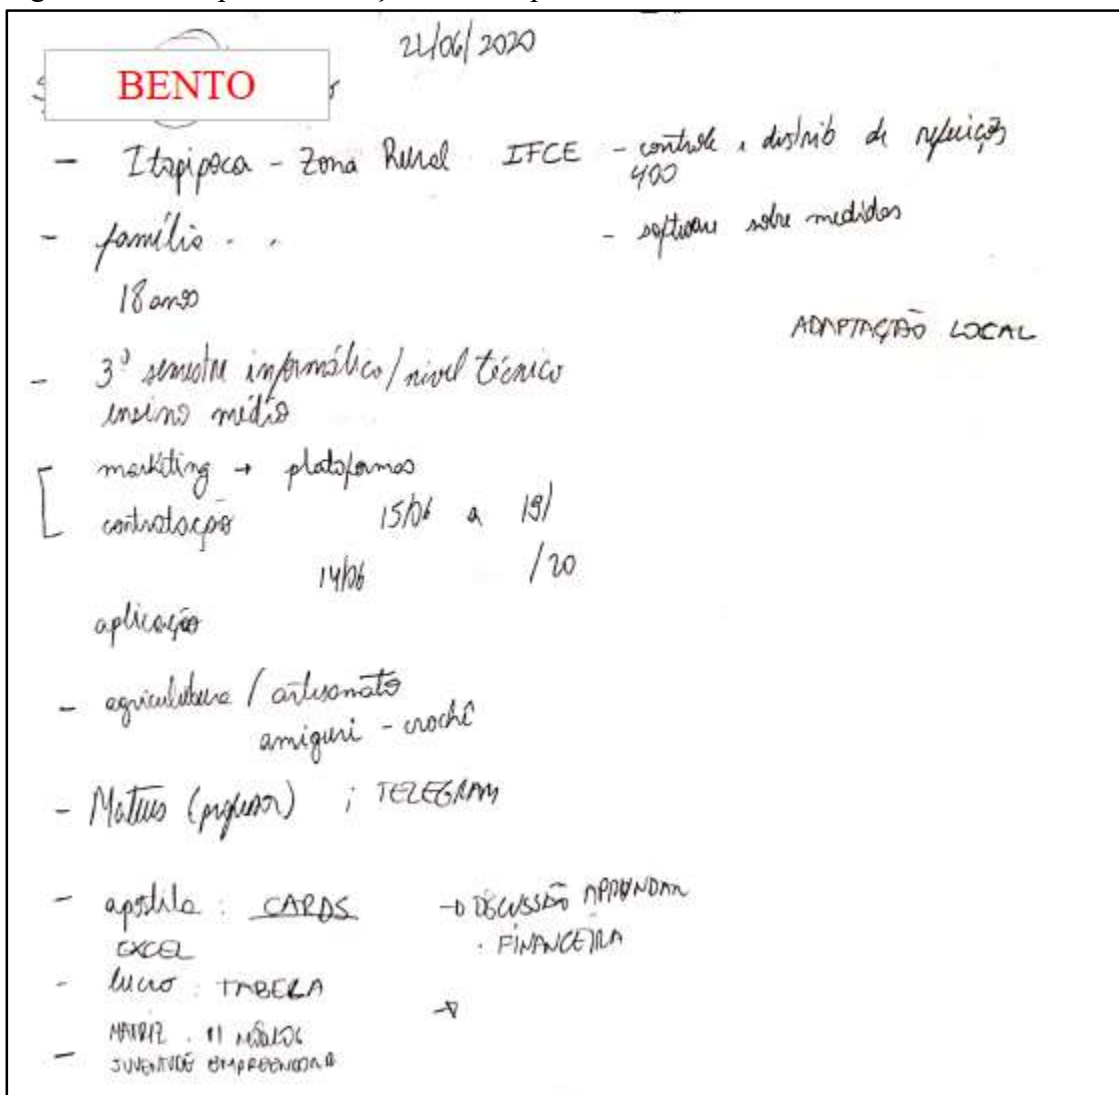 21/06/2020
BENTO
- Itapipoca - Zona Rural IFCE - controle, distrib de refeições
400
- família . . - software sobre medidas
18 anos
ADAPTAÇÃO LOCAL
- 3º semestre informática/nível técnico
ensino médio
marketing → plataformas
contratação 15/06 a 19/
14/06 /20
aplicação
- agricultura / artesanato
amiguri - crochê
- Mateus (professor) ; TELEGRAM
- apostila : CARDS → DISCUSSÃO
EXCEL . FINANCEIRA
- lucro : TABELA →
MATRIZ . 11 MÓDULOS
- JUVENTUDE EMPREENDORA